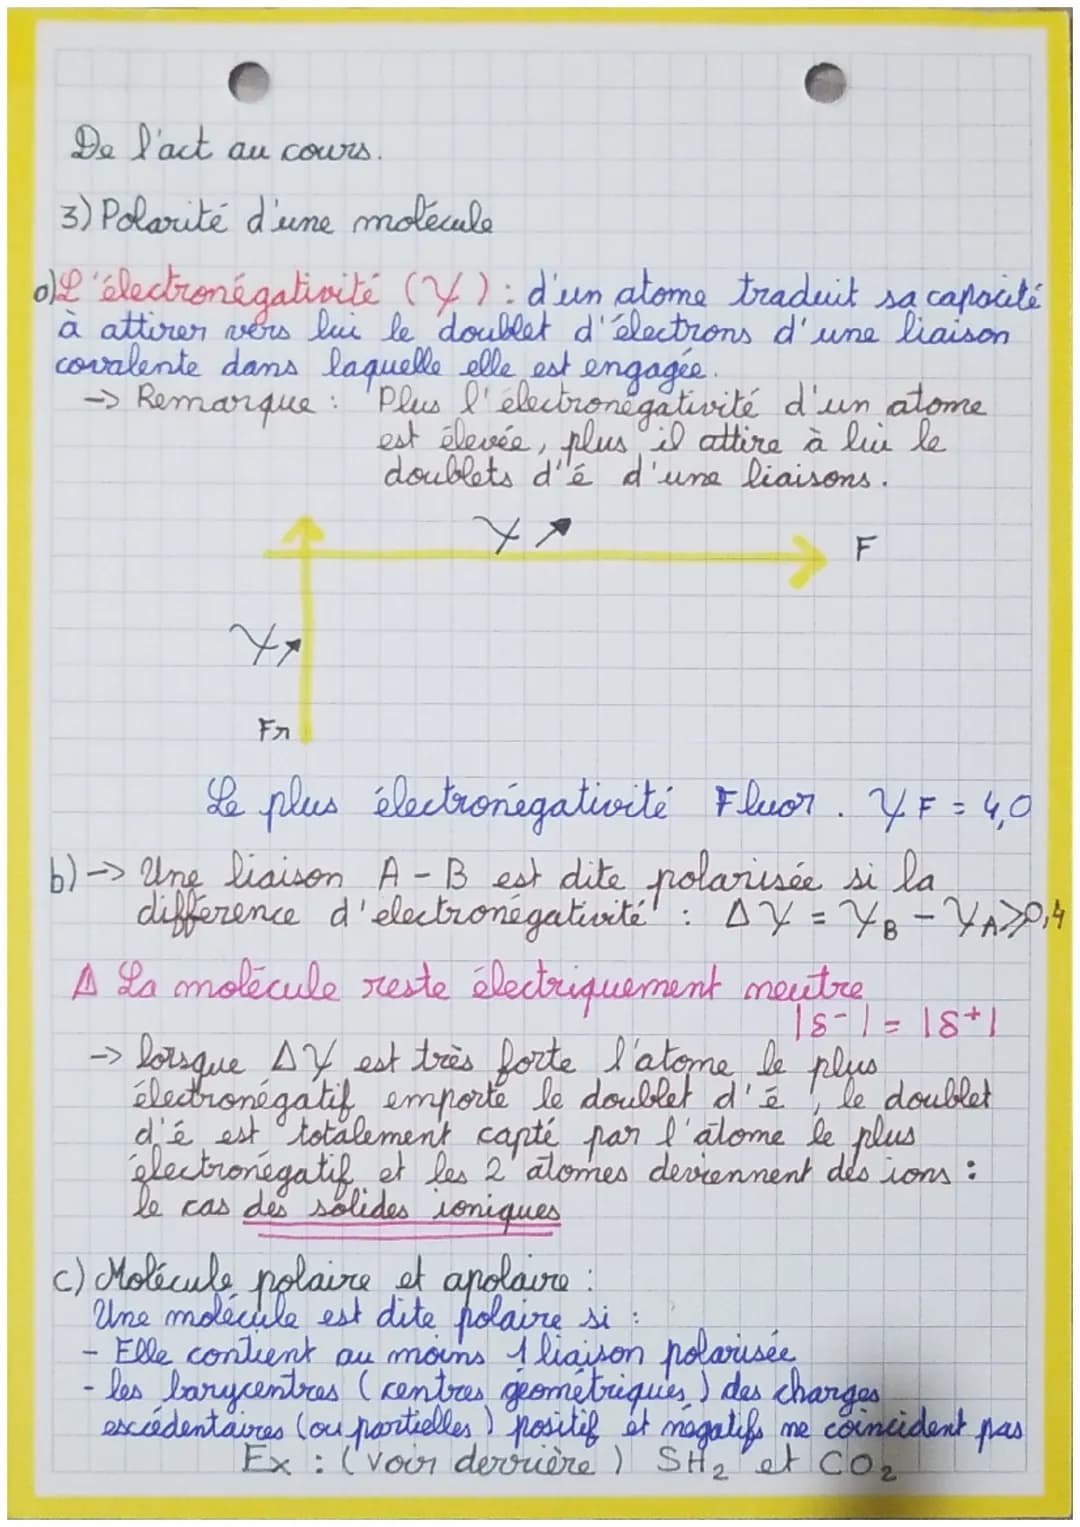 De l'act au cours.
3) Polarité d'une molécule
a) L'électronégativité (χ) : d'un atome traduit sa capacité
à attirer vers lui le doublet d'électrons d'une liaison
covalente dans laquelle elle est engagée.
→ Remarque : Plus l'électronégativité d'un atome
est élevée, plus il attire à lui le
doublets d'é d'une liaisons.
χ ↗ F
χ ↗
Fr
Le plus électronégativité Fluor. χF = 4,0
b) → Une liaison A - B est dite polarisée si la
différence d'electronégativité : Δχ = χB - χA ⩾ 0,4
⚠ La molécule reste électriquement neutre
|δ-| = |δ+|
→ lorsque Δχ est très forte l'atome le plus
électronégatif emporte le doublet d'é, le doublet
d'é est totalement capté par l'atome le plus
électronégatif et les 2 atomes deviennent des ions :
le cas des solides ioniques
c) Molécule polaire et apolaire :
Une molécule est dite polaire si :
- Elle contient au moins 1 liaison polarisée
- les barycentres (centres géométriques) des charges
excédentaires (ou partielles) positif et négatifs ne coincident pas
Ex : (voir derrière) SH2 et CO2